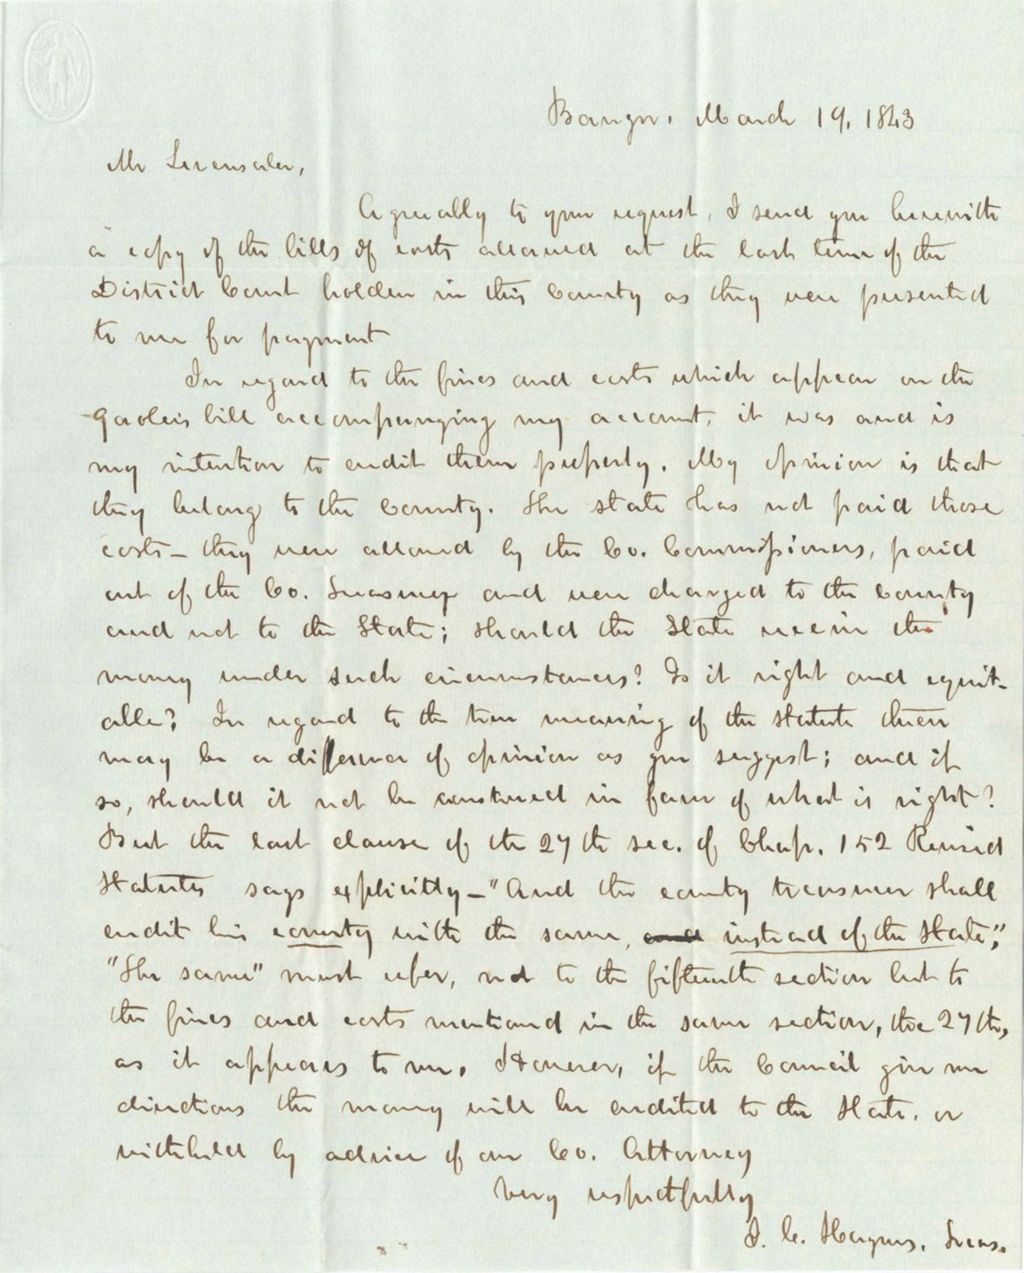 Bangor, March 19, 1843
Mr Levensaler,
Agreeably to your request, I send you herewith
a copy of the bills of costs allowed at the last term of the
District Court holden in this County as they were presented
to me for payment
In regard to the fines and costs which appear on the
Gaoler's bill accompanying my account, it was and is
my intention to credit them properly. My opinion is that
they belong to the County. The State has not paid those
costs – they were allowed by the Co. Commissioners, paid
out of the Co. Treasury and were charged to the County
and not to the State; should the State receive the
money under such circumstances? Is it right and equit-
able? In regard to the true meaning of the statute there
may be a difference of opinion as you suggest; and if
so, should it not be construed in favor of what is right?
But the last clause of the 27th sec. of Chap. 152 Revised
Statutes says explicitly – "And the county treasurer shall
credit his county with the same, and instead of the State;"
"The same" must refer, not to the fifteenth section but to
the fines and costs mentioned in the same section, the 27th,
as it appears to me. However, if the Council give me
directions the money will be credited to the State, or
withheld by advice of our Co. Attorney
Very respectfully
J. C. Haynes, Treas.